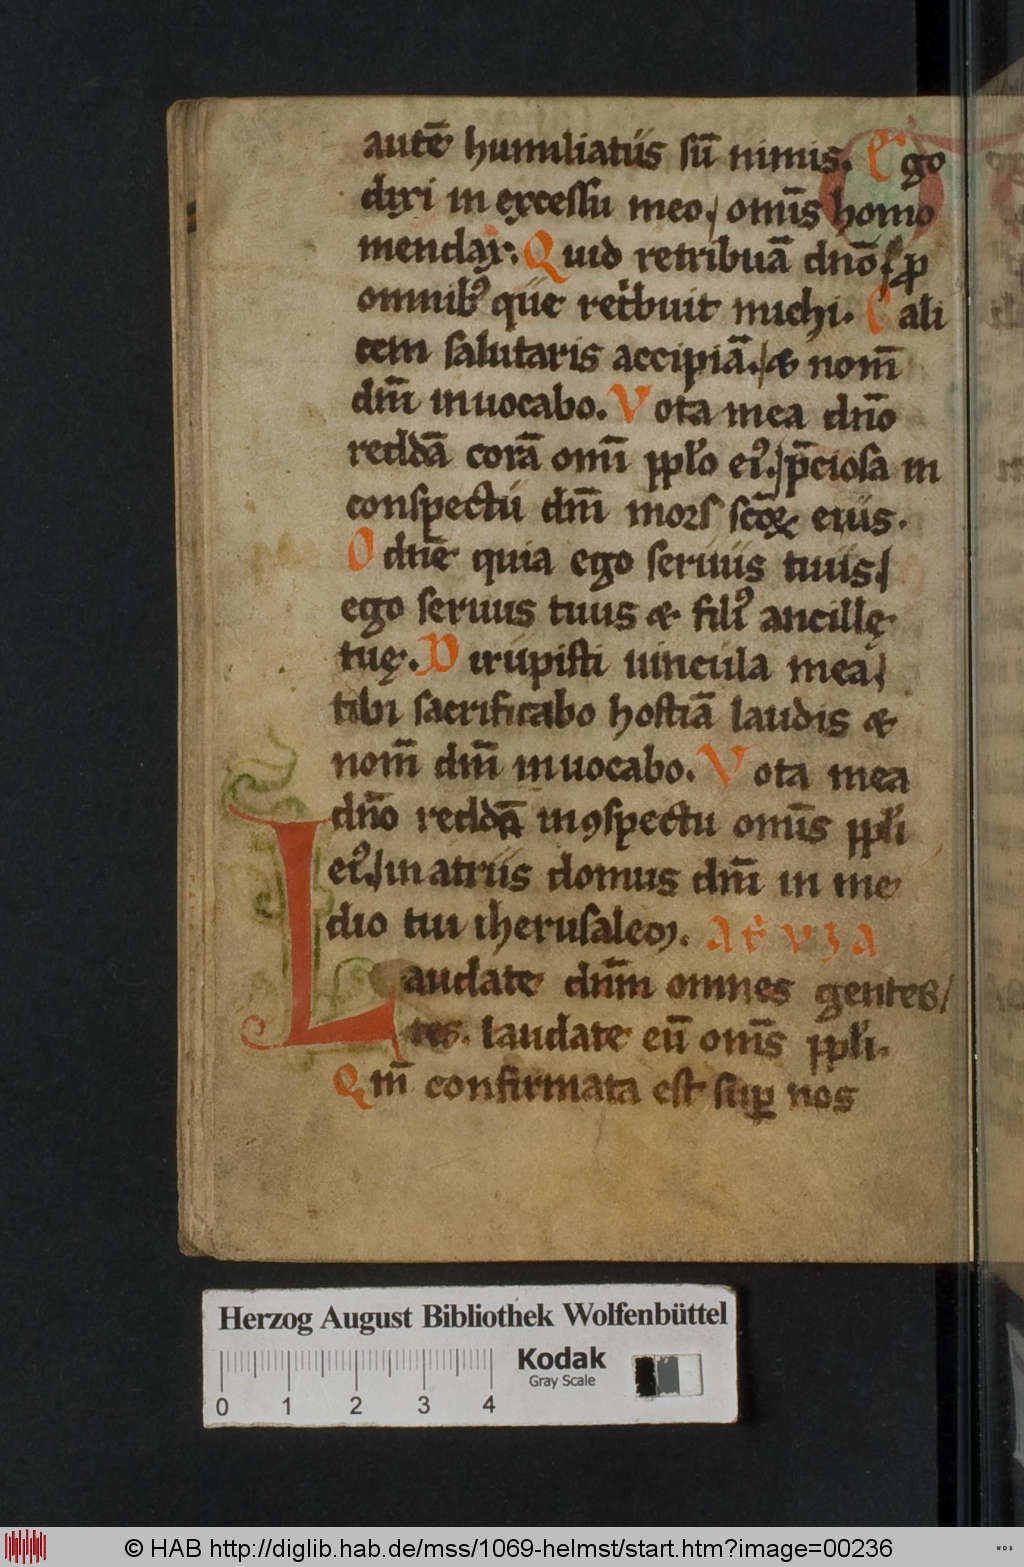 autē humiliatus sū nimis. Ego
dixi in excessu meo, om̄s homo
mendax. Quid retribuā dn̄o, ꝓ
omnib᷒ que ret͛buit michi. Cali
cem salutaris accipiā. & nom̄
dn̄i inuocabo. Vota mea dn̄o
reddā corā omī ppl̓o ei᷒. p̄ciosa in
conspectu dn̄i mors sc̄oꝝ eius.
O dn̄e quia ego seruus tuus/
ego seruus tuus & fili᷒ ancillę
tuę. Dirupisti uincula mea/
tibi sacrificabo hostiā laudis &
nom̄ dn̄i inuocabo. Vota mea
dn̄o reddā in ꝯspectu om̄is ppl̓i
ei᷒. in atriis domus dn̄i in me
dio tui iherusalem.
Laudate dn̄m omnes gentes/
tes. laudate eū om̄s ppl̓i.
Qm̄ confirmata est suꝑ nos
Herzog August Bibliothek Wolfenbüttel
Kodak
Gray Scale
0 1 2 3 4
© HAB http://diglib.hab.de/mss/1069-helmst/start.htm?image=00236